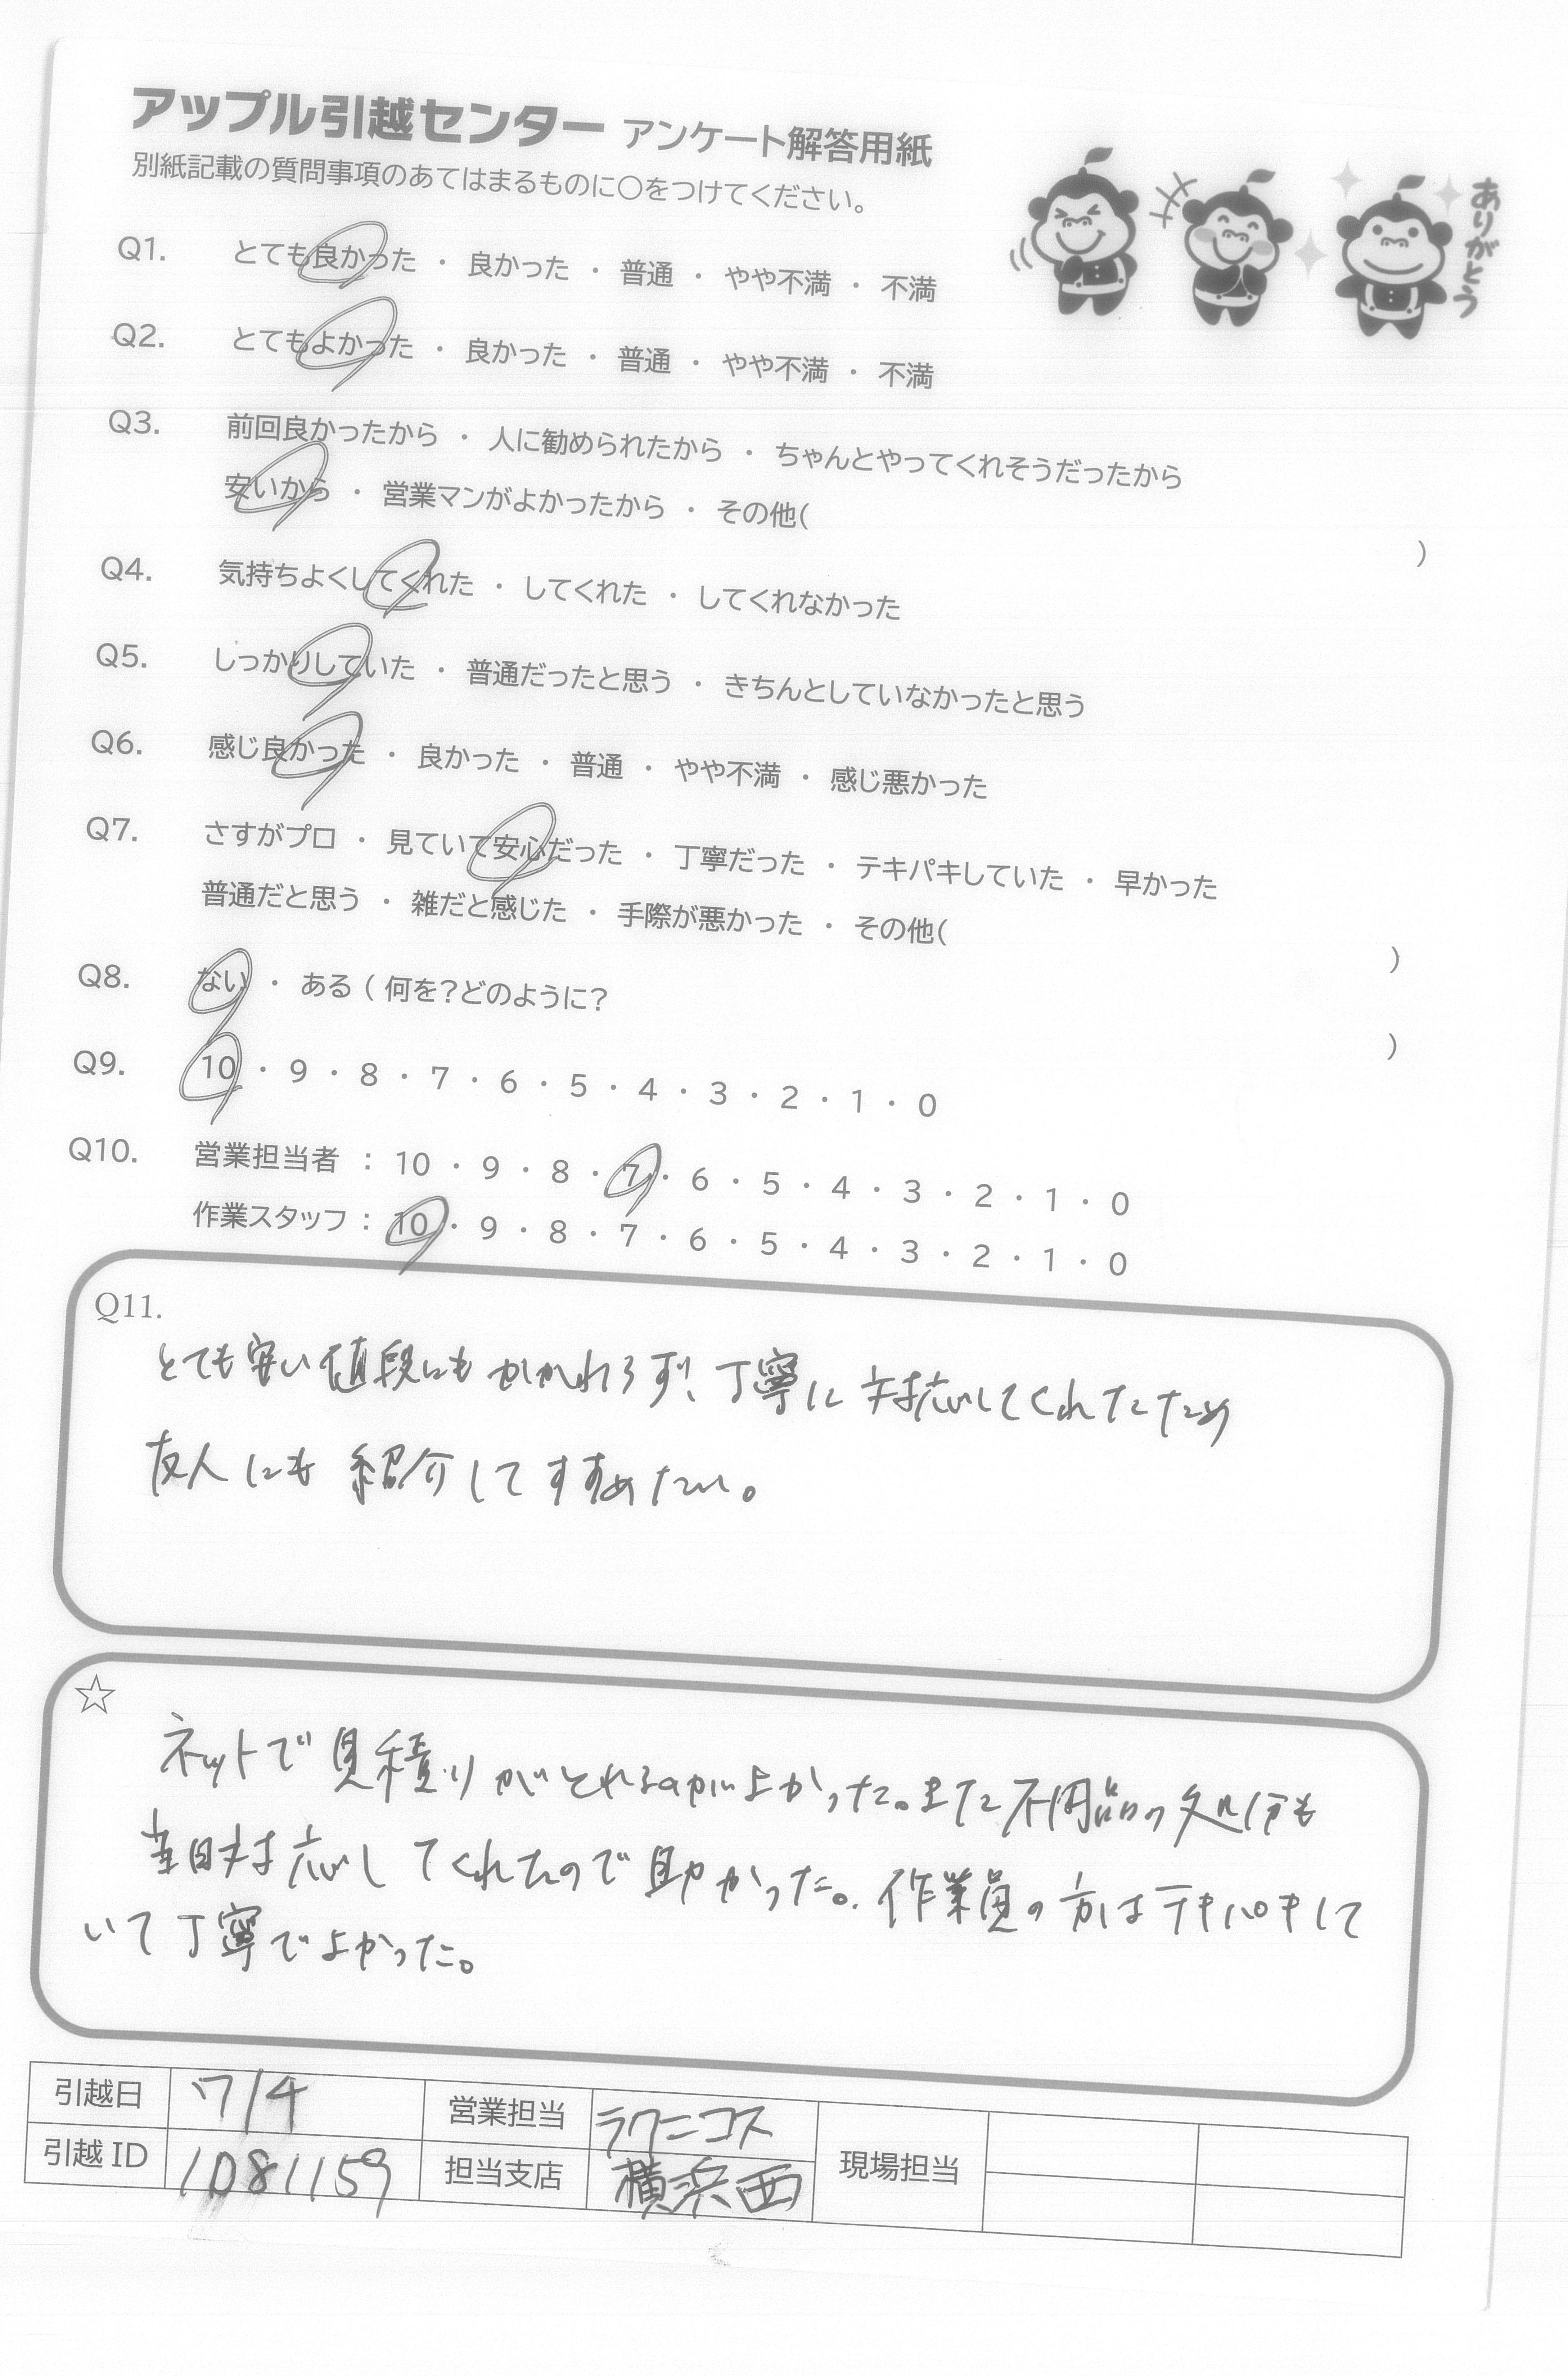 アップル引越センター アンケート解答用紙
別紙記載の質問事項のあてはまるものに〇をつけてください。
ありがとう
Q1. とても良かった ・ 良かった ・ 普通 ・ やや不満 ・ 不満
Q2. とてもよかった ・ 良かった ・ 普通 ・ やや不満 ・ 不満
Q3. 前回良かったから ・ 人に勧められたから ・ ちゃんとやってくれそうだったから
安いから ・ 営業マンがよかったから ・ その他( )
Q4. 気持ちよくしてくれた ・ してくれた ・ してくれなかった
Q5. しっかりしていた ・ 普通だったと思う ・ きちんとしていなかったと思う
Q6. 感じ良かった ・ 良かった ・ 普通 ・ やや不満 ・ 感じ悪かった
Q7. さすがプロ ・ 見ていて安心だった ・ 丁寧だった ・ テキパキしていた ・ 早かった
普通だと思う ・ 雑だと感じた ・ 手際が悪かった ・ その他( )
Q8. ない ・ ある ( 何を?どのように? )
Q9. 10 ・ 9 ・ 8 ・ 7 ・ 6 ・ 5 ・ 4 ・ 3 ・ 2 ・ 1 ・ 0
Q10. 営業担当者 : 10 ・ 9 ・ 8 ・ 7 ・ 6 ・ 5 ・ 4 ・ 3 ・ 2 ・ 1 ・ 0
作業スタッフ : 10 ・ 9 ・ 8 ・ 7 ・ 6 ・ 5 ・ 4 ・ 3 ・ 2 ・ 1 ・ 0
Q11.
とても安い値段にもかかわらず、丁寧に対応してくれたため
友人にも紹介してすすめたい。
☆
ネットで見積りがとれるのがよかった。また不用品の処分も
当日対応してくれたので助かった。作業員の方はテキパキして
いて丁寧でよかった。
引越日 7/4 営業担当 ラクニコス 現場担当
引越ID 1081159 担当支店 横浜西